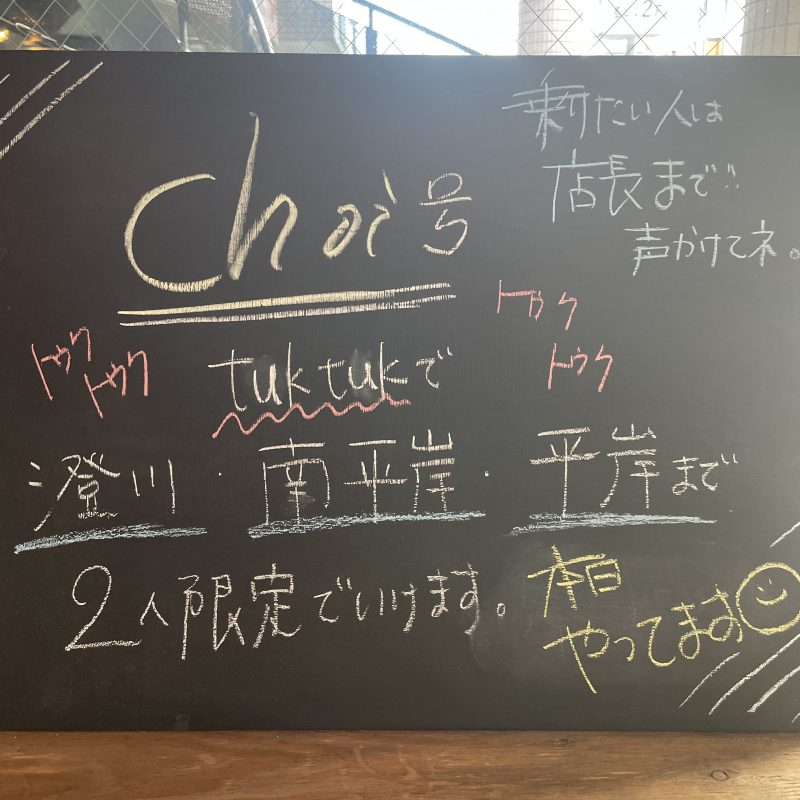 choi号
乗りたい人は
店長まで!!
声かけてネ。
トゥク
トゥク
トゥク
トゥク
tuktukで
澄川・南平岸・平岸まで
2人限定でいけます。
本日
やってます